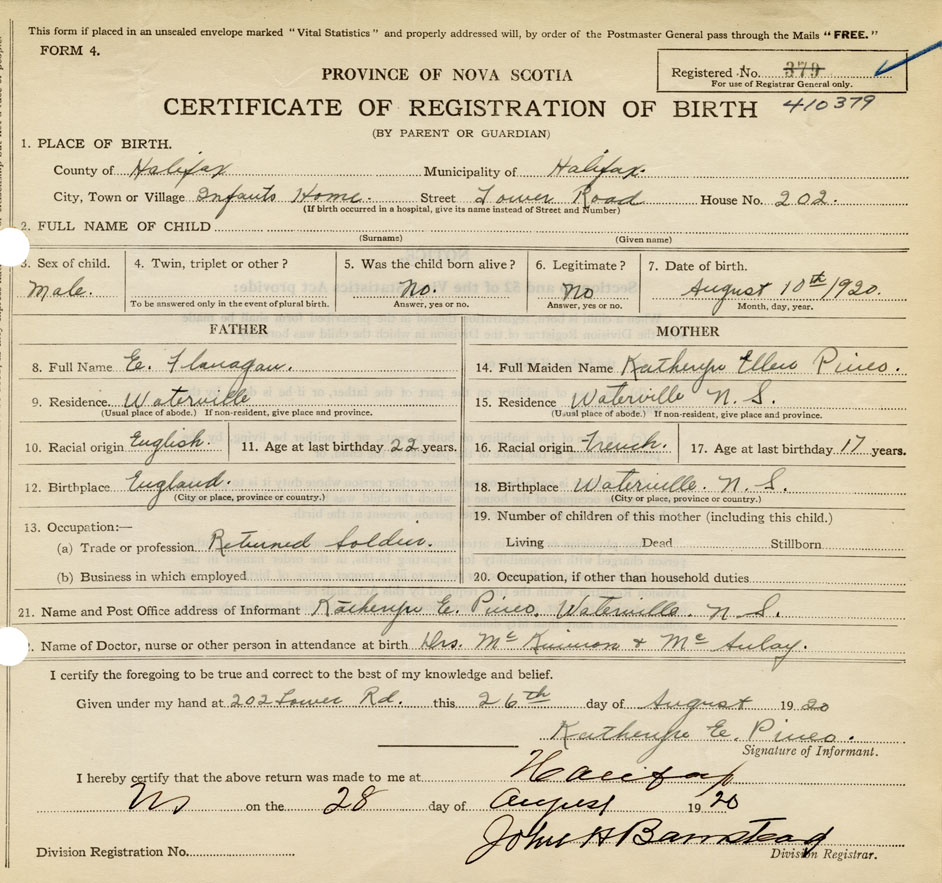 This form if placed in an unsealed envelope marked "Vital Statistics" and properly addressed will, by order of the Postmaster General pass through the Mails "FREE."
FORM 4.
PROVINCE OF NOVA SCOTIA
Registered No. 379
For use of Registrar General only.
CERTIFICATE OF REGISTRATION OF BIRTH 410379
(BY PARENT OR GUARDIAN)
1. PLACE OF BIRTH.
County of Halifax Municipality of Halifax.
City, Town or Village Infants Home. Street Tower Road House No. 202.
(If birth occurred in a hospital, give its name instead of Street and Number)
2. FULL NAME OF CHILD
(Surname) (Given name)
3. Sex of child. 4. Twin, triplet or other? 5. Was the child born alive? 6. Legitimate? 7. Date of birth.
Male. No. No August 10th/1920.
To be answered only in the event of plural birth. Answer, yes or no. Answer, yes or no. Month, day, year.
FATHER MOTHER
8. Full Name E. Flanagan. 14. Full Maiden Name Katheryn Ellen Pineo.
9. Residence. Waterville 15. Residence Waterville N. S.
(Usual place of abode.) If non-resident, give place and province. (Usual place of abode.) If non-resident, give place and province.
10. Racial origin English. 11. Age at last birthday 22 years. 16. Racial origin French. 17. Age at last birthday 17 years.
12. Birthplace England. 18. Birthplace Waterville. N. S.
(City or place, province or country.) (City or place, province or country.)
13. Occupation:— 19. Number of children of this mother (including this child.)
(a) Trade or profession. Returned Soldier. Living Dead Stillborn
(b) Business in which employed 20. Occupation, if other than household duties
21. Name and Post Office address of Informant Katheryn E. Pineo, Waterville. N. S.
. Name of Doctor, nurse or other person in attendance at birth Drs. McKinnon & McAulay.
I certify the foregoing to be true and correct to the best of my knowledge and belief.
Given under my hand at 202 Tower Rd. this 26th day of August 1920
Katheryn E. Pineo.
Signature of Informant.
I hereby certify that the above return was made to me at Halifax
NS on the 28 day of August 1920
John H Barnstead
Division Registration No. Division Registrar.